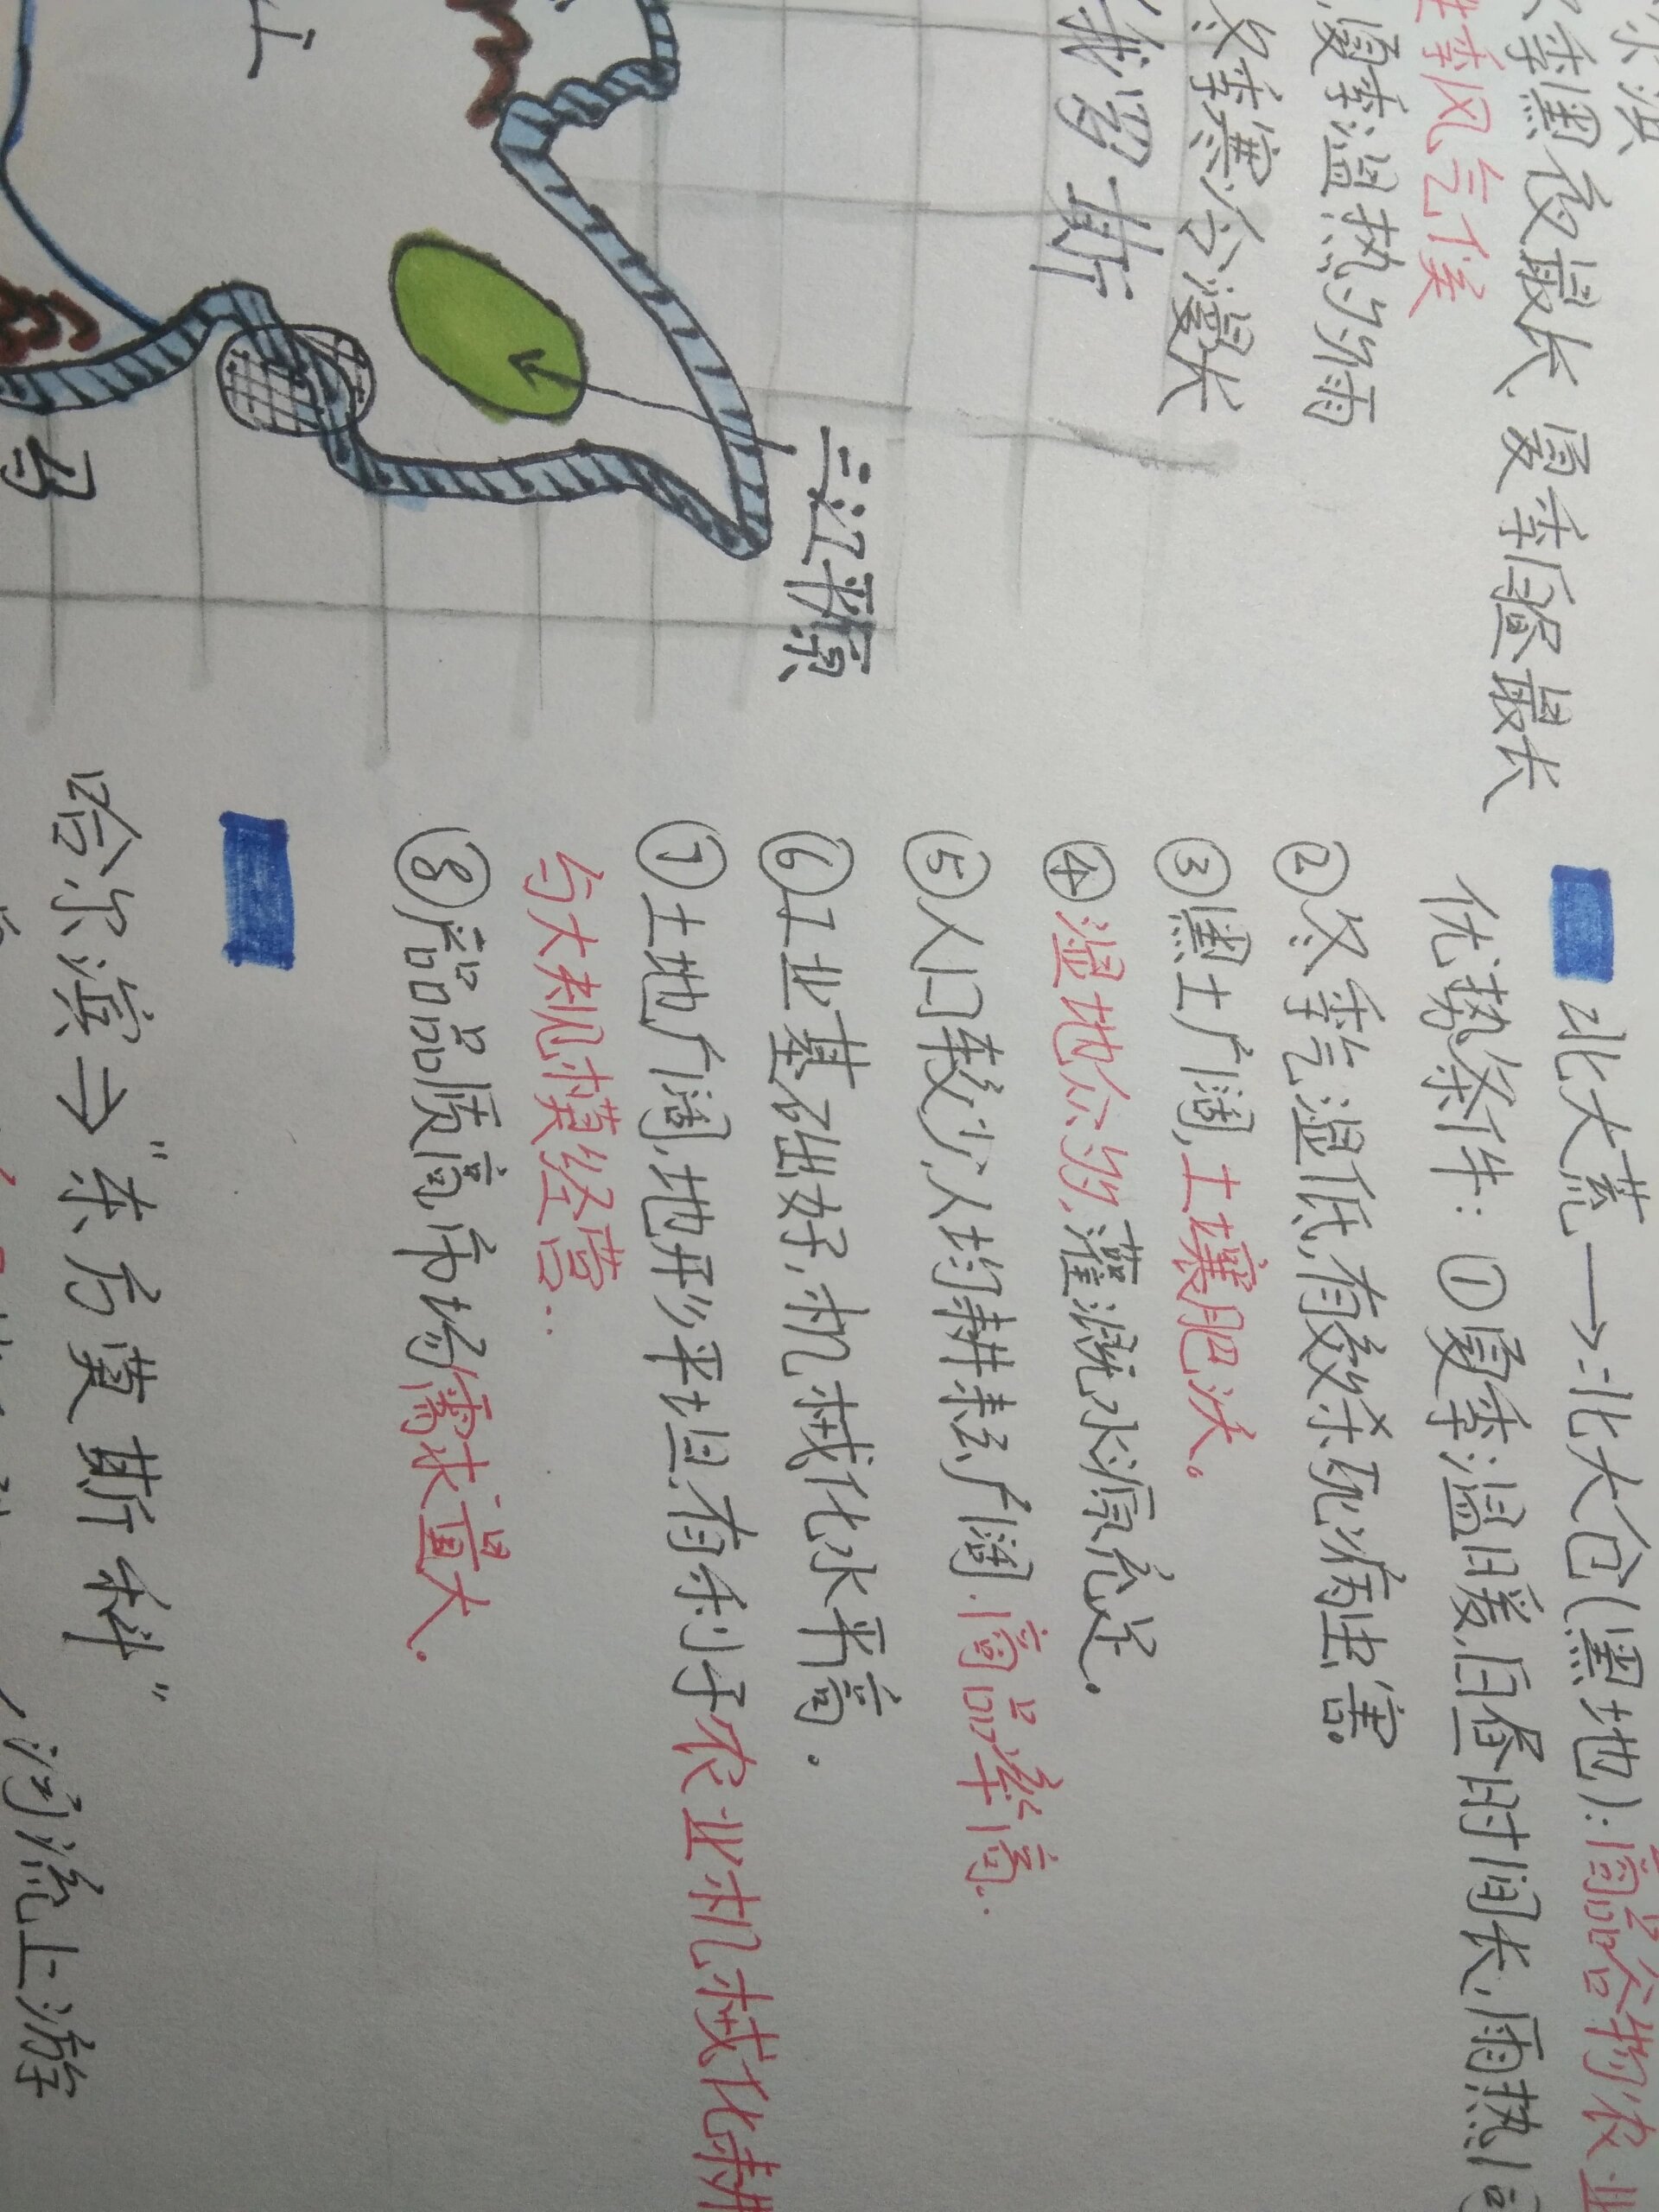 尔滨
季黑夜最长, 夏季白昼最长
季风气候
夏季温热多雨
冬季寒冷漫长
俄罗斯
三江平原
北大荒→北大仓(黑地): 商品谷物农业
优势条件: ①夏季温暖,白昼时间长,雨热
②冬季气温低,有效杀死病虫害.
③黑土广阔,土壤肥沃。
④湿地众多,灌溉水源充足。
⑤人口较少,人均耕耘广阔.商品率高..
⑥工业基础好,机械化水平高.
⑦土地广阔,地形平坦,有利于农业机械化耕
与大规模经营..
⑧产品品质高,市场需求量大。
哈尔滨→“东方莫斯科”
河流上游